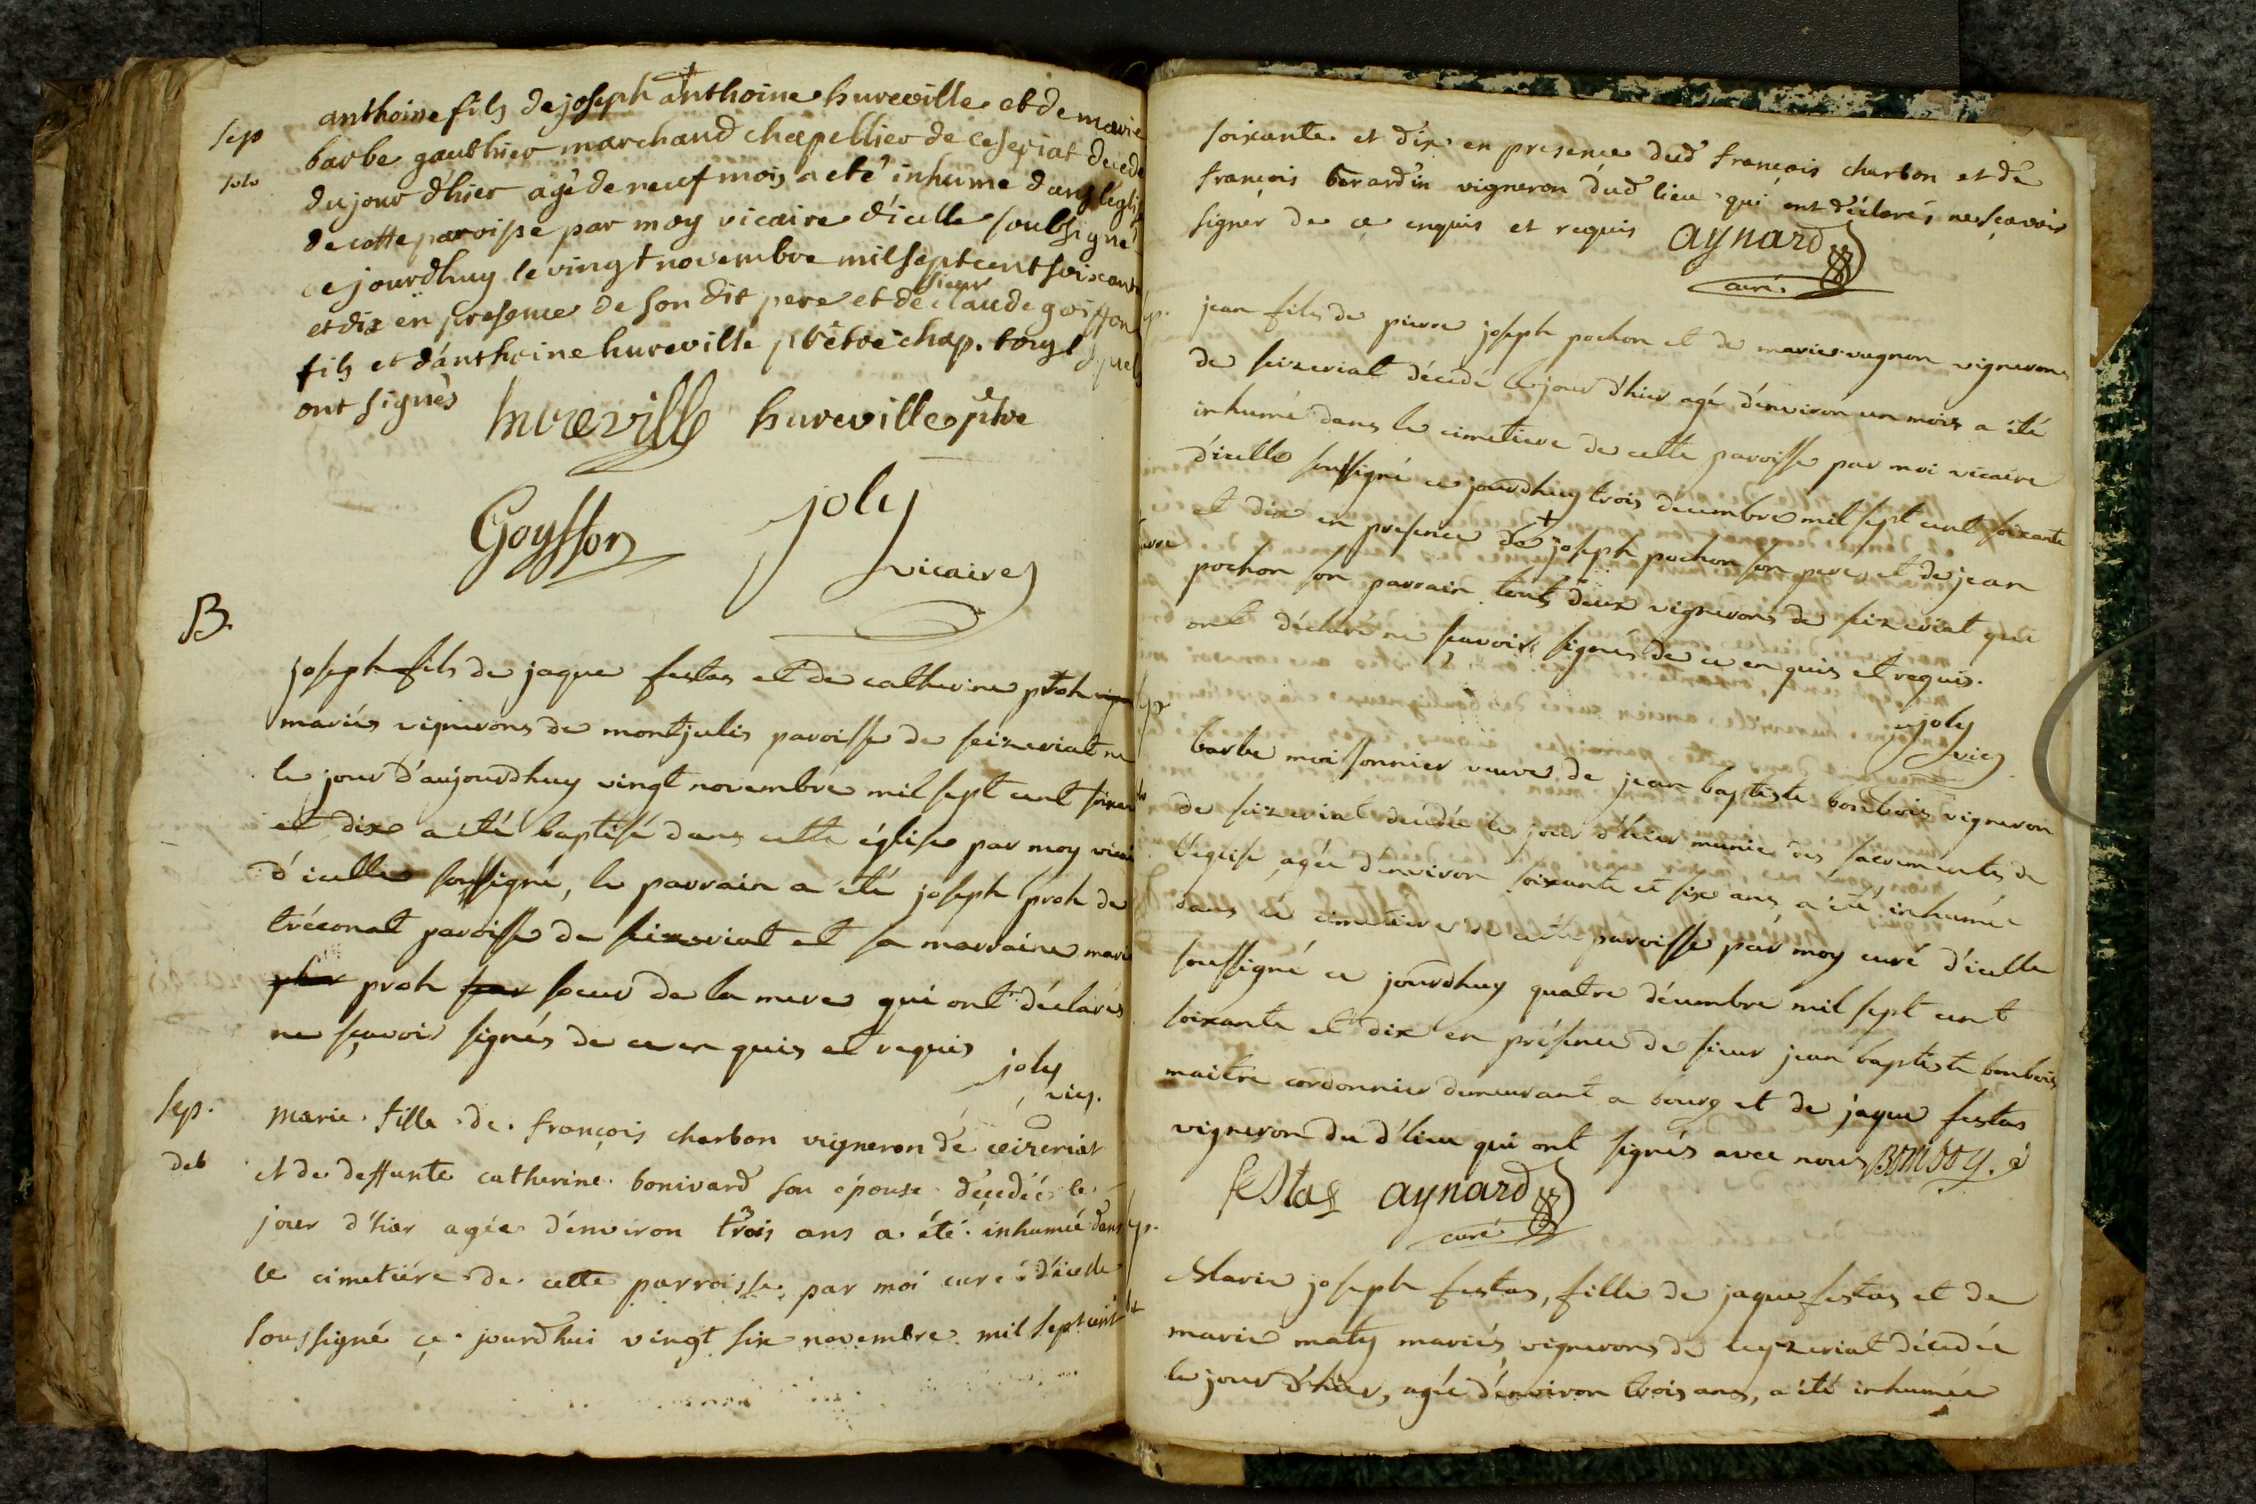 anthoine fils de joseph anthoine hureville et de marie
Sep
barbe gauthier marchand chapellier de ceseriat decedé
solo
du jour d'hier agé de neuf mois a eté inhumé dans l'eglise
de cette paroisse par moy vicaire d'icelle soubsigné
ce jourdhuy le vingt novembre mil sept cent soixante
sieur
et dix en presence de son dit pere et de claude goiffon
fils et d'anthoine hureville prêtre chap.
ont signés
hureville hureville ptre
Goyffon joly
vicaire
B.
joseph fils de jaque festas et de catherine proh
mariés vignerons de montjulis paroisse de seizeriat né
le jour d'aujourdhuy vingt novembre mil sept cent soixante
et dix a été baptisé dans cette église par moy vicaire
d'icelle soussigné, le parrain a été joseph proh de
tréconat paroisse de seizeriat et sa marraine marie
proh soeur de la mere qui ont déclarés
ne sçavoir signés de ce en quis et requis
joly
vic.
Sep.
Marie fille de françois charbon vigneron de ceizeriat
deb
et de deffunte catherine bonivard son épouse décedée le
jour d'hier agée d'environ trois ans a été inhumée dans
le cimetiére de cette parroisse par moi curé d'icelle
soussigné ce jourdhui vingt six novembre mil sept cent
soixante et dix en presence dud françois charbon et de
françois berardin vigneron dud lieu qui ont déclarés ne sçavoir
signer de ce enquis et requis aynard
curé
jean fils de pierre joseph pochon et de marie vugnon vignerons
de seizeriat décedé le jour d'hier agé d'environ un mois a été
inhumé dans le cimetiere de cette paroisse par moi vicaire
d'icelle soussigné ce jourdhuy trois decembre mil sept cent soixante
et dix en presence de joseph pochon son pere, et de jean
pochon son parrain touts deux vignerons de seizeriat qui
ont déclaré ne sçavoir signés de ce en quis et requis.
joly
vic
barbe moissonnier veuve de jean baptiste bonbois vigneron
de seizeriat decedée le jour d'hier munie des sacrements de
l'eglise agée d'environ soixante et six ans a été inhumée
dans le cimetiere de cette paroisse par moy curé d'icelle
soussigné ce jourdhuy quatre décembre mil sept cent
soixante et dix en présence de sieur jean baptiste bonbois
maitre cordonnier demeurant a bourg et de jaque festas
vigneron du d'lieu qui ont signés avec nous Bonboy.
festas aynard
curé
Marie joseph festas, fille de jaque festas et de
marie maty mariés vignerons de ceyzeriat décedée
le jour d'hier, agée d'environ trois ans, a été inhumée